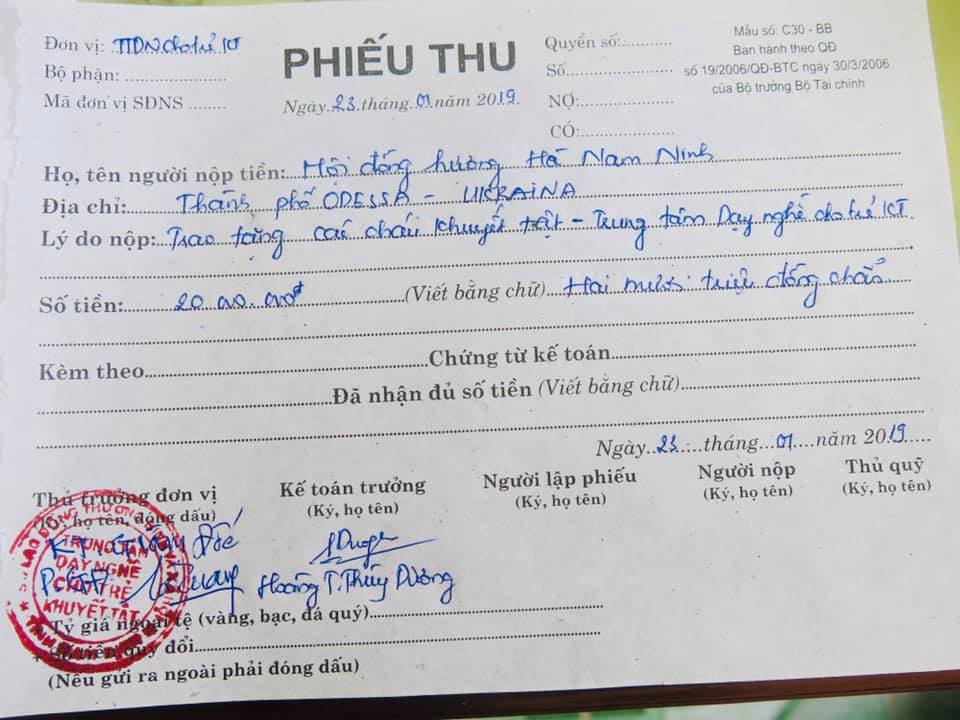 Đơn vị: TTDN cho trẻ KT
Bộ phận: ......................
Mã đơn vị SDNS ........
PHIẾU THU
Ngày 23 tháng 01 năm 2019
Quyển số:...........
Số........................
NỢ:.....................
CÓ:.....................
Mẫu số: C30 - BB
Ban hành theo QĐ
số 19/2006/QĐ-BTC ngày 30/3/2006
của Bộ trưởng Bộ Tài chính
Họ, tên người nộp tiền: Hội đồng hương Hà Nam Ninh
Địa chỉ: Thành phố ODESSA - UKRAINA
Lý do nộp: Trao tặng các cháu khuyết tật - Trung tâm Dạy nghề cho trẻ KT.
Số tiền: 20.000.000đ (Viết bằng chữ) Hai mươi triệu đồng chẵn
Kèm theo..........Chứng từ kế toán..........
..........Đã nhận đủ số tiền (Viết bằng chữ)..........
Ngày 23 tháng 01 năm 2019
Thủ trưởng đơn vị
(Ký, họ tên, đóng dấu)
Kế toán trưởng
(Ký, họ tên)
Người lập phiếu
(Ký, họ tên)
Người nộp
(Ký, họ tên)
Thủ quỹ
(Ký, họ tên)
KT Giám Đốc
P.GĐ
Hoàng T. Thúy Dương
TRUNG TÂM
DẠY NGHỀ
CHO TRẺ
KHUYẾT TẬT
+ Tỷ giá ngoại tệ (vàng, bạc, đá quý)..........
+ Số tiền quy đổi..........
(Nếu gửi ra ngoài phải đóng dấu)